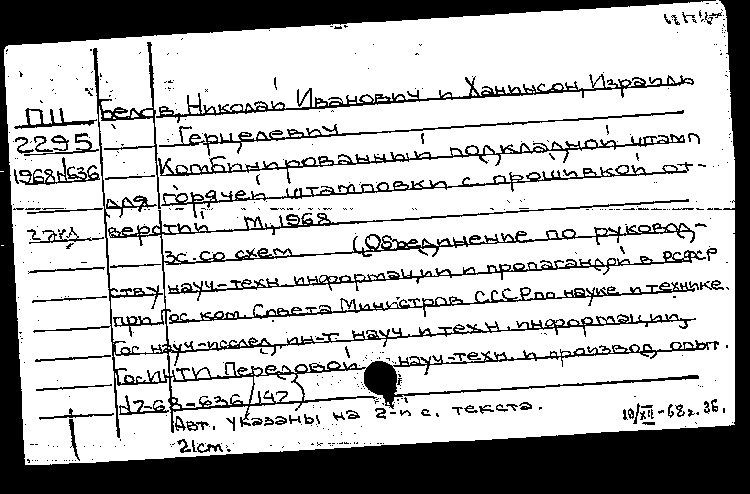 П11 Белов, Николай Иванович и Ханинсон, Израиль
2295 Герцелевич
1968№636 Комбинированный подкладной штамп
для горячей штамповки с прошивкой от-
2 экз верстий М., 1968
3с. со схем (Объединение по руковод-
ству науч.-техн. информации и пропагандой в РСФСР
при Гос ком. Совета Министров СССР по науке и технике.
Гос науч-исслед. ин-т науч. и техн. информации,
ГосИНТИ. Передовой науч-техн. и производ. опыт.
№2-68-636/142)
Авт. указаны на 2-й с. текста.
21см. 10/XII-68г. ЗБ.